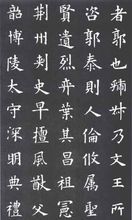 者郭也虢叔乃文王所
咨郭泰則人倫攸屬聖
賢遺烈奕葉其昌祖憲
荊州刺史早擅風猷父
韶博陵太守深明典禮